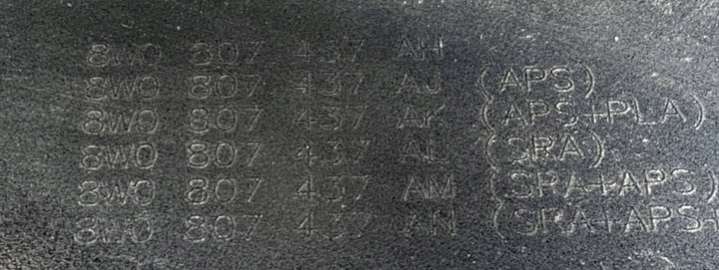 8W0 807 437 AH
8W0 807 437 AJ (APS)
8W0 807 437 AK (APS+PLA)
8W0 807 437 AL (SRA)
8W0 807 437 AM (SRA+APS)
8W0 807 437 AN (SRA+APS+